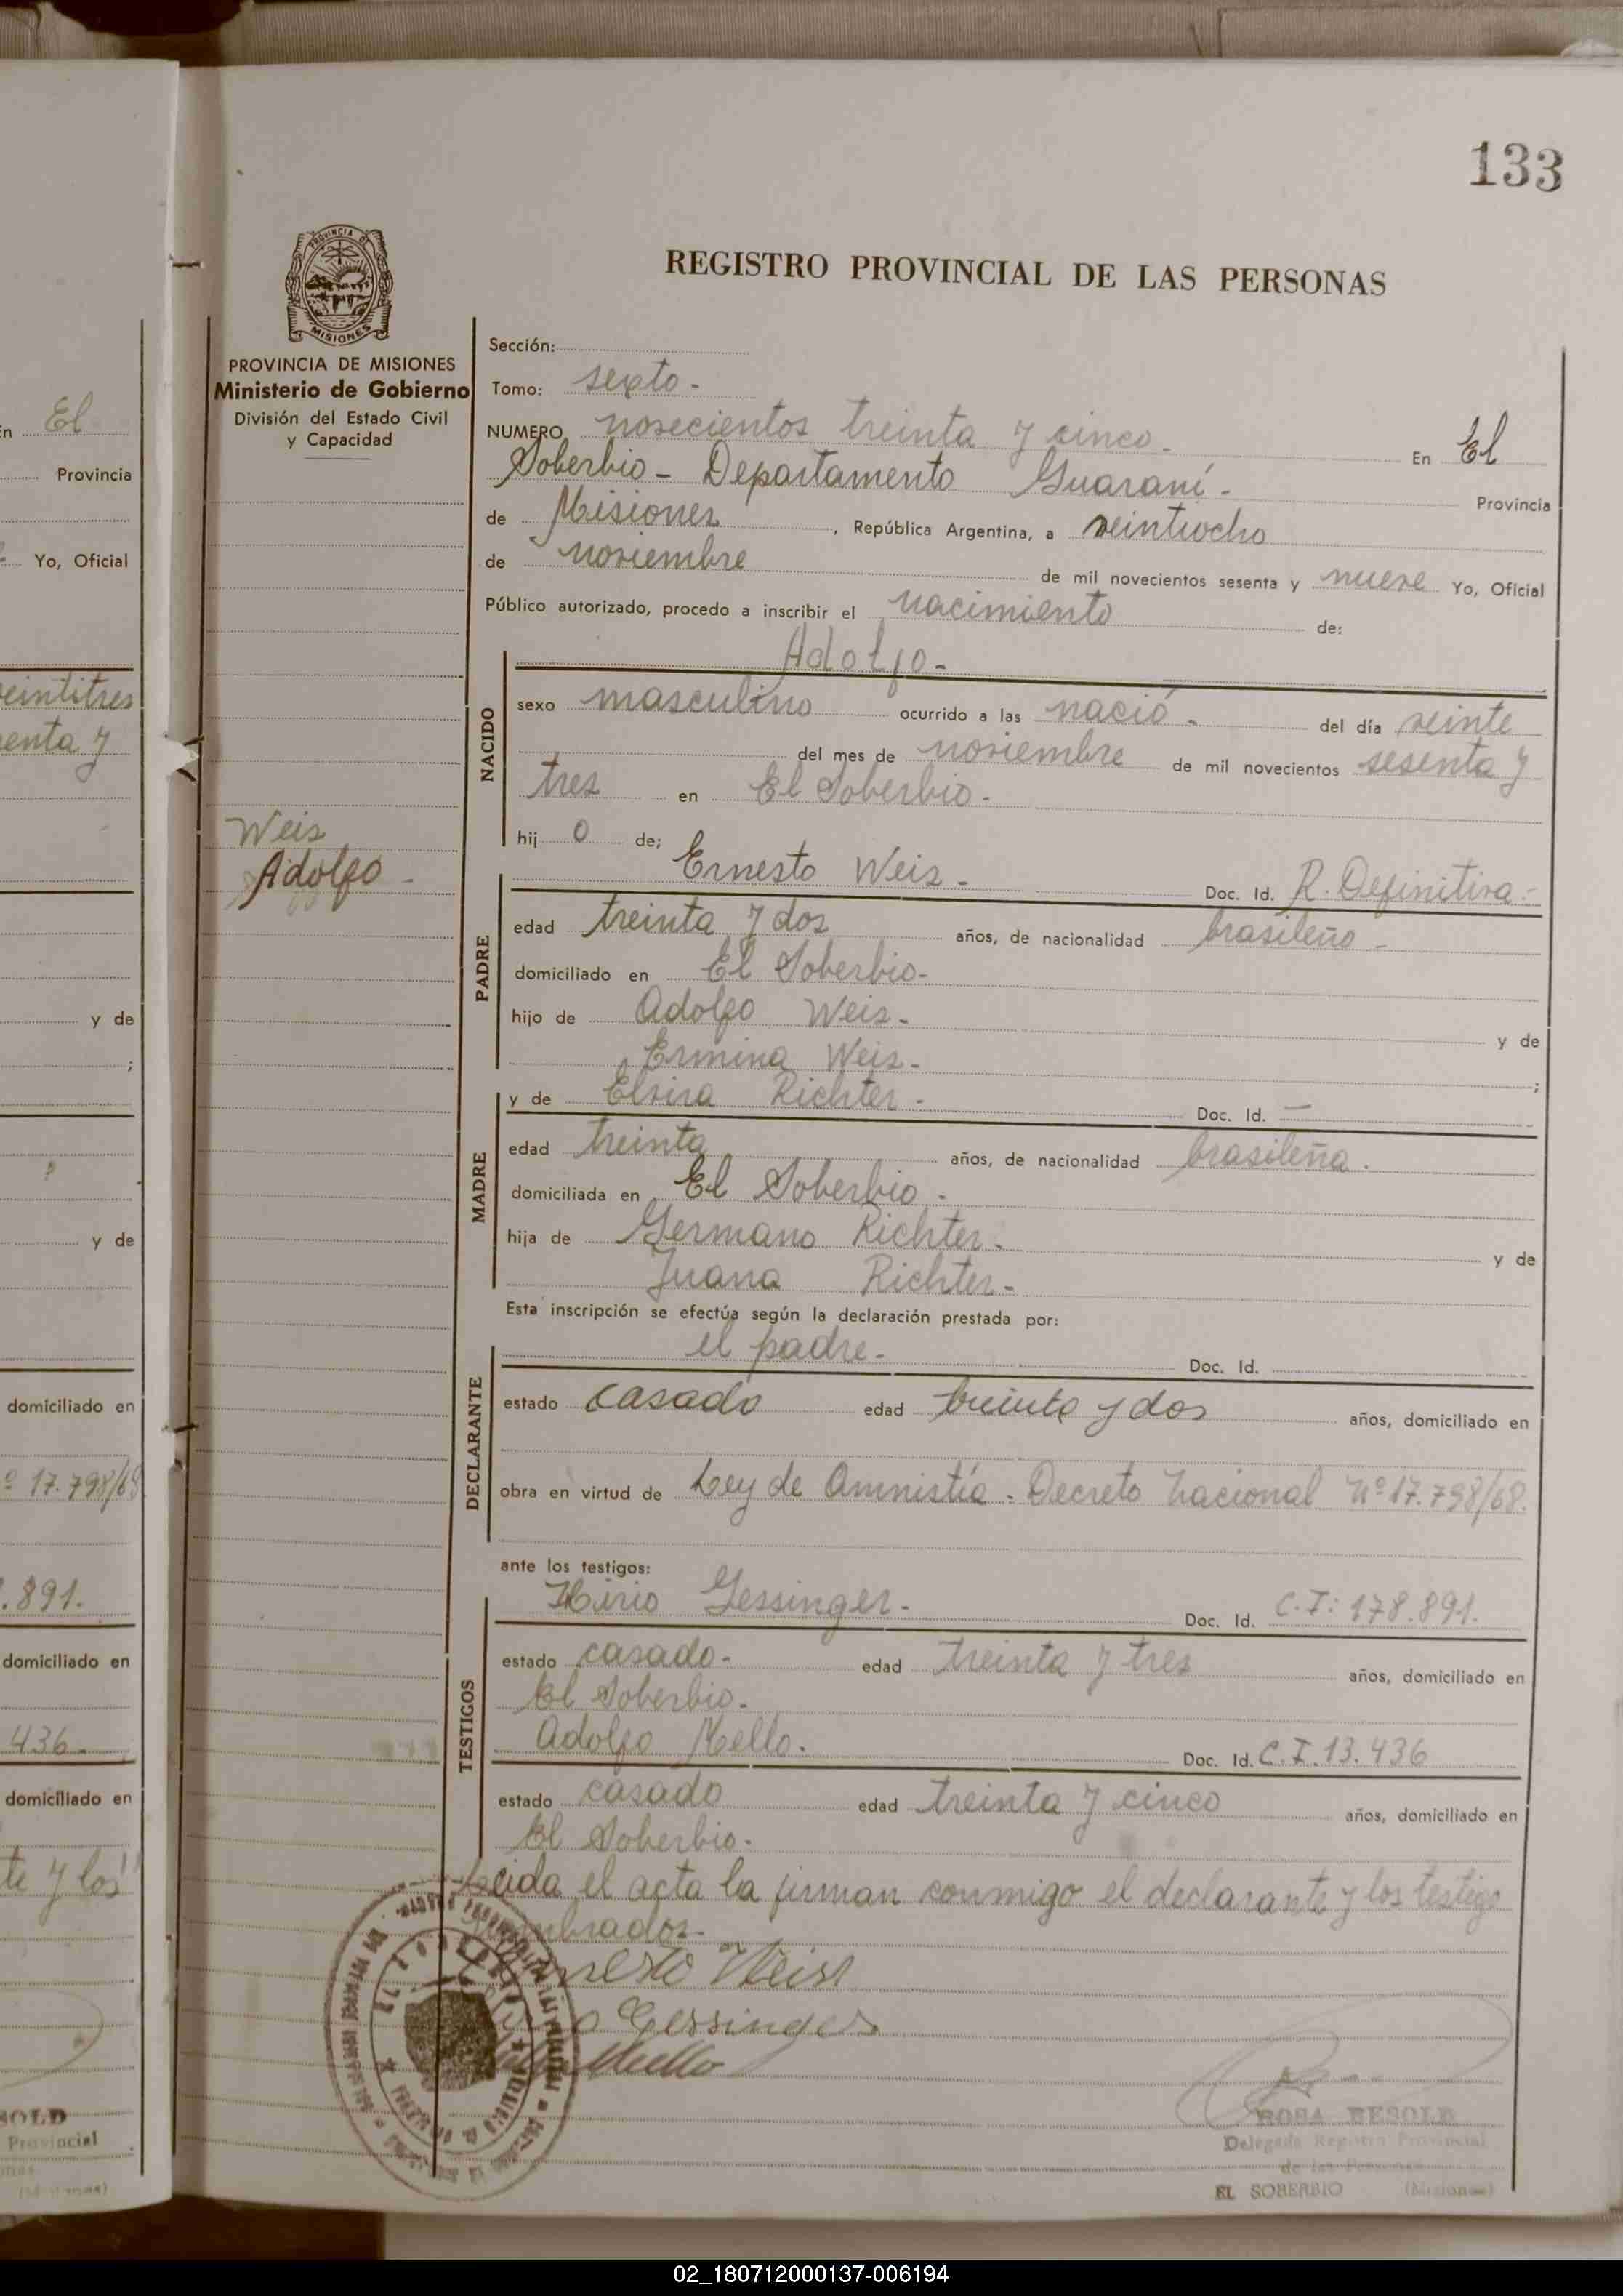 133
PROVINCIA DE
MISIONES
PROVINCIA DE MISIONES
Ministerio de Gobierno
División del Estado Civil
y Capacidad
REGISTRO PROVINCIAL DE LAS PERSONAS
Sección:
Tomo: sexto.-
NUMERO novecientos treinta y cinco.- En El
Soberbio - Departamento Guaraní.- Provincia
de Misiones, República Argentina, a veintiocho
de noviembre de mil novecientos sesenta y nueve Yo, Oficial
Público autorizado, procedo a inscribir el nacimiento de:
Adolfo-
NACIDO
sexo masculino ocurrido a las nació.- del día veinte
del mes de noviembre de mil novecientos sesenta y
tres en El Soberbio.-
hij o de;
Weis
Adolfo -
PADRE
Ernesto Weis.- Doc. Id. R. Definitiva.-
edad treinta y dos años, de nacionalidad brasileño-
domiciliado en El Soberbio-
hijo de Adolfo Weis.- y de
Ermina Weis.- ;
MADRE
y de Elvira Richter.- Doc. Id. —
edad treinta años, de nacionalidad brasileña.
domiciliada en El Soberbio.
hija de Germano Richter.- y de
Juana Richter.-
Esta inscripción se efectúa según la declaración prestada por:
DECLARANTE
el padre.- Doc. Id.
estado casado edad treinta y dos años, domiciliado en
obra en virtud de Ley de Amnistía. Decreto Nacional Nº 17.798/68.
ante los testigos:
TESTIGOS
Gessinger.- Doc. Id. C.I: 178.891.
estado casado.- edad treinta y tres años, domiciliado en
El Soberbio.
Adolfo Mello. Doc. Id. C.I. 13.436
estado casado edad treinta y cinco años, domiciliado en
El Soberbio.
el acta la firman conmigo el declarante y los testigo
Weiss
Gessinger
Mello
ROSA BESOLD
Delegada Registro Provincial
de las Personas
EL SOBERBIO (Misiones)
En El
Provincia
Yo, Oficial
veintitres
y de
;
y de
domiciliado en
º 17.798/68
.891.
domiciliado en
436.
domiciliado en
te y los
SOLD
Provincial
02_180712000137-006194